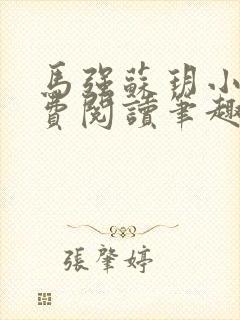 馬強蘇玥小
費閱讀筆趣
張肇婷